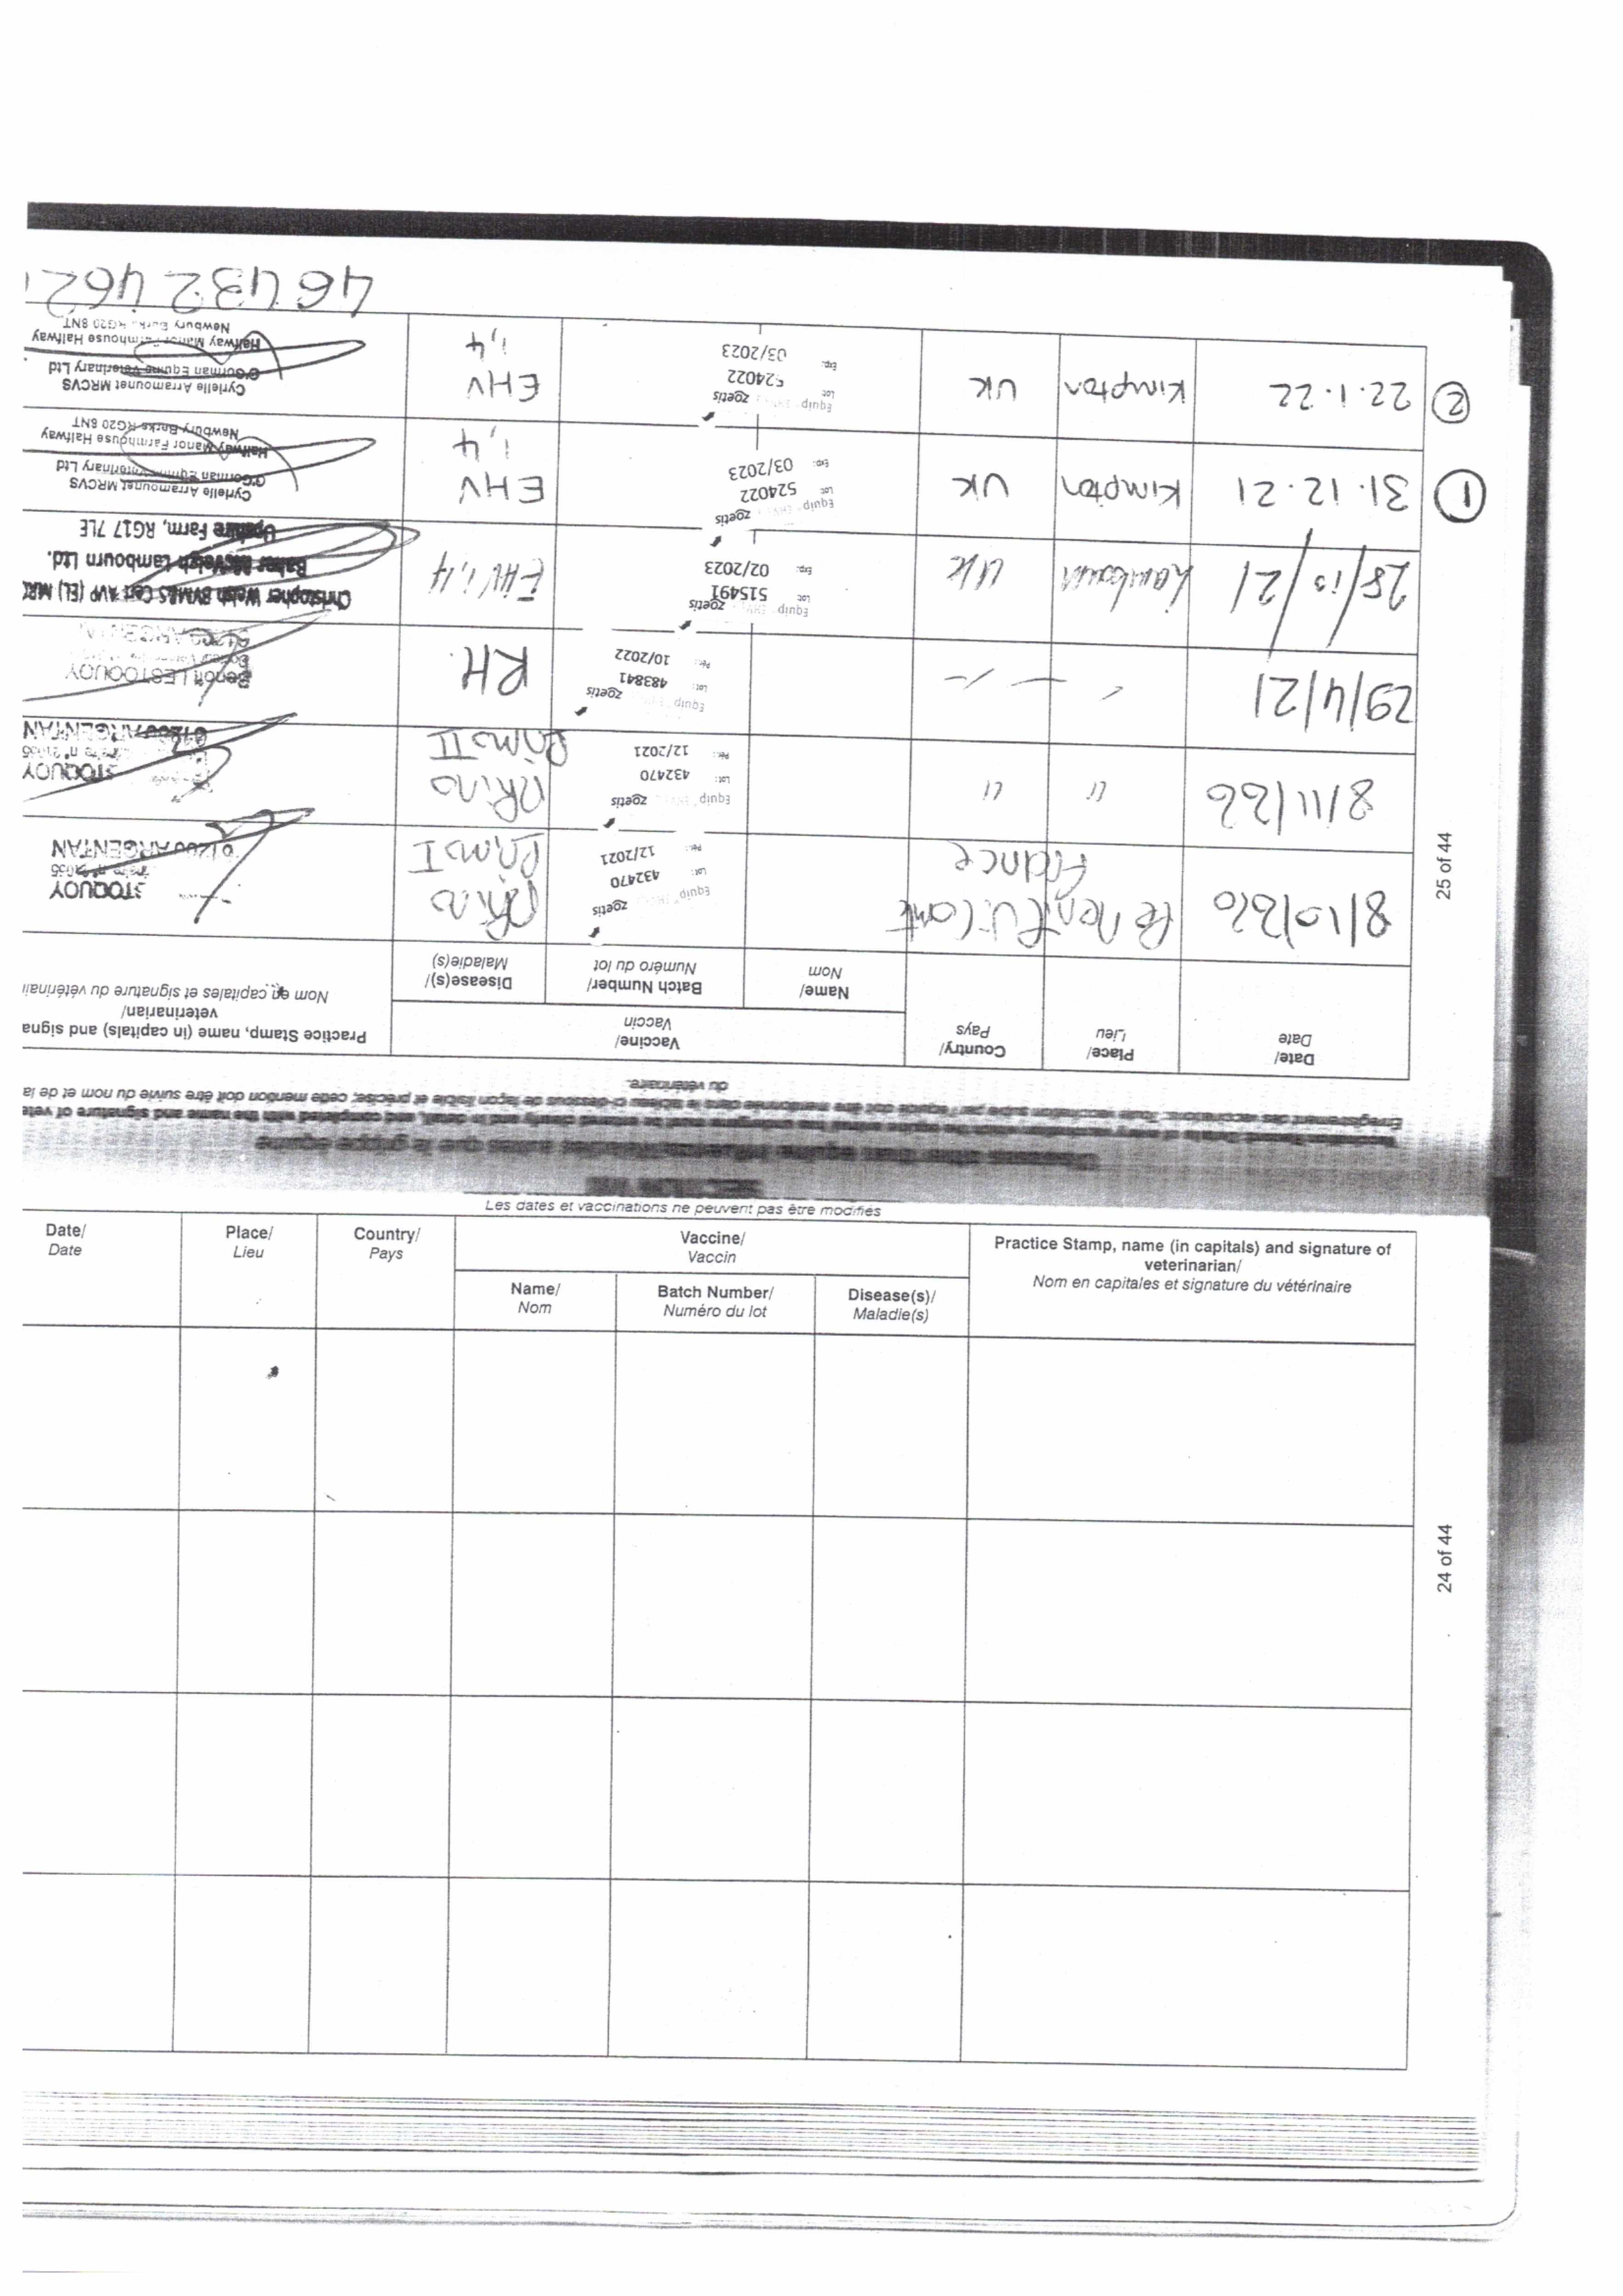 SECTION VIII
Diseases other than equine influenza/Maladies autres que la grippe équine
Enregistrement des vaccinations. Toute vaccination subie par l'équidé doit être mentionnée dans le tableau ci-dessous de façon lisible et précise; cette mention doit être suivie du nom et de la
du vétérinaire.
Date/
Date
Place/
Lieu
Country/
Pays
Vaccine/
Vaccin
Name/
Nom
Batch Number/
Numéro du lot
Disease(s)/
Maladie(s)
Practice Stamp, name (in capitals) and signa
veterinarian/
Nom en capitales et signature du vétérinai
8/10/2020
France
zoetis
Equip
Lot: 432470
Pér.: 12/2021
Rhino
Primo I
STOQUOY
61200 ARGENTAN
8/11/20
"
"
zoetis
Equip
Lot: 432470
Pér.: 12/2021
Rhino
Primo II
STOQUOY
61200 ARGENTAN
29/4/21
zoetis
Equip
Lot: 483841
Pér.: 10/2022
RH.
Benoît LESTOQUOY
28/10/21
Lambourn
UK
zoetis
Equip
Lot: 515491
Exp: 02/2023
EHV 1,4
Christopher Welsh BVM&S Cert AVP (EL) MRC
Baker McVeigh Lambourn Ltd.
Upshire Farm, RG17 7LE
1
31.12.21
Kimpton
UK
zoetis
Equip
Lot: 524022
Exp: 03/2023
EHV
1,4
Cyrielle Arramounet MRCVS
O'Gorman Equine Veterinary Ltd
Halfway Manor Farmhouse Halfway
Newbury Berks RG20 8NT
2
22.1.22
Kimpton
UK
zoetis
Equip
Lot: 524022
Exp: 03/2023
EHV
1,4
Cyrielle Arramounet MRCVS
O'Gorman Equine Veterinary Ltd
Halfway Manor Farmhouse Halfway
Newbury Berks RG20 8NT
46432462
25 of 44
Les dates et vaccinations ne peuvent pas être modifiés
Date/
Date
Place/
Lieu
Country/
Pays
Vaccine/
Vaccin
Name/
Nom
Batch Number/
Numéro du lot
Disease(s)/
Maladie(s)
Practice Stamp, name (in capitals) and signature of
veterinarian/
Nom en capitales et signature du vétérinaire
24 of 44